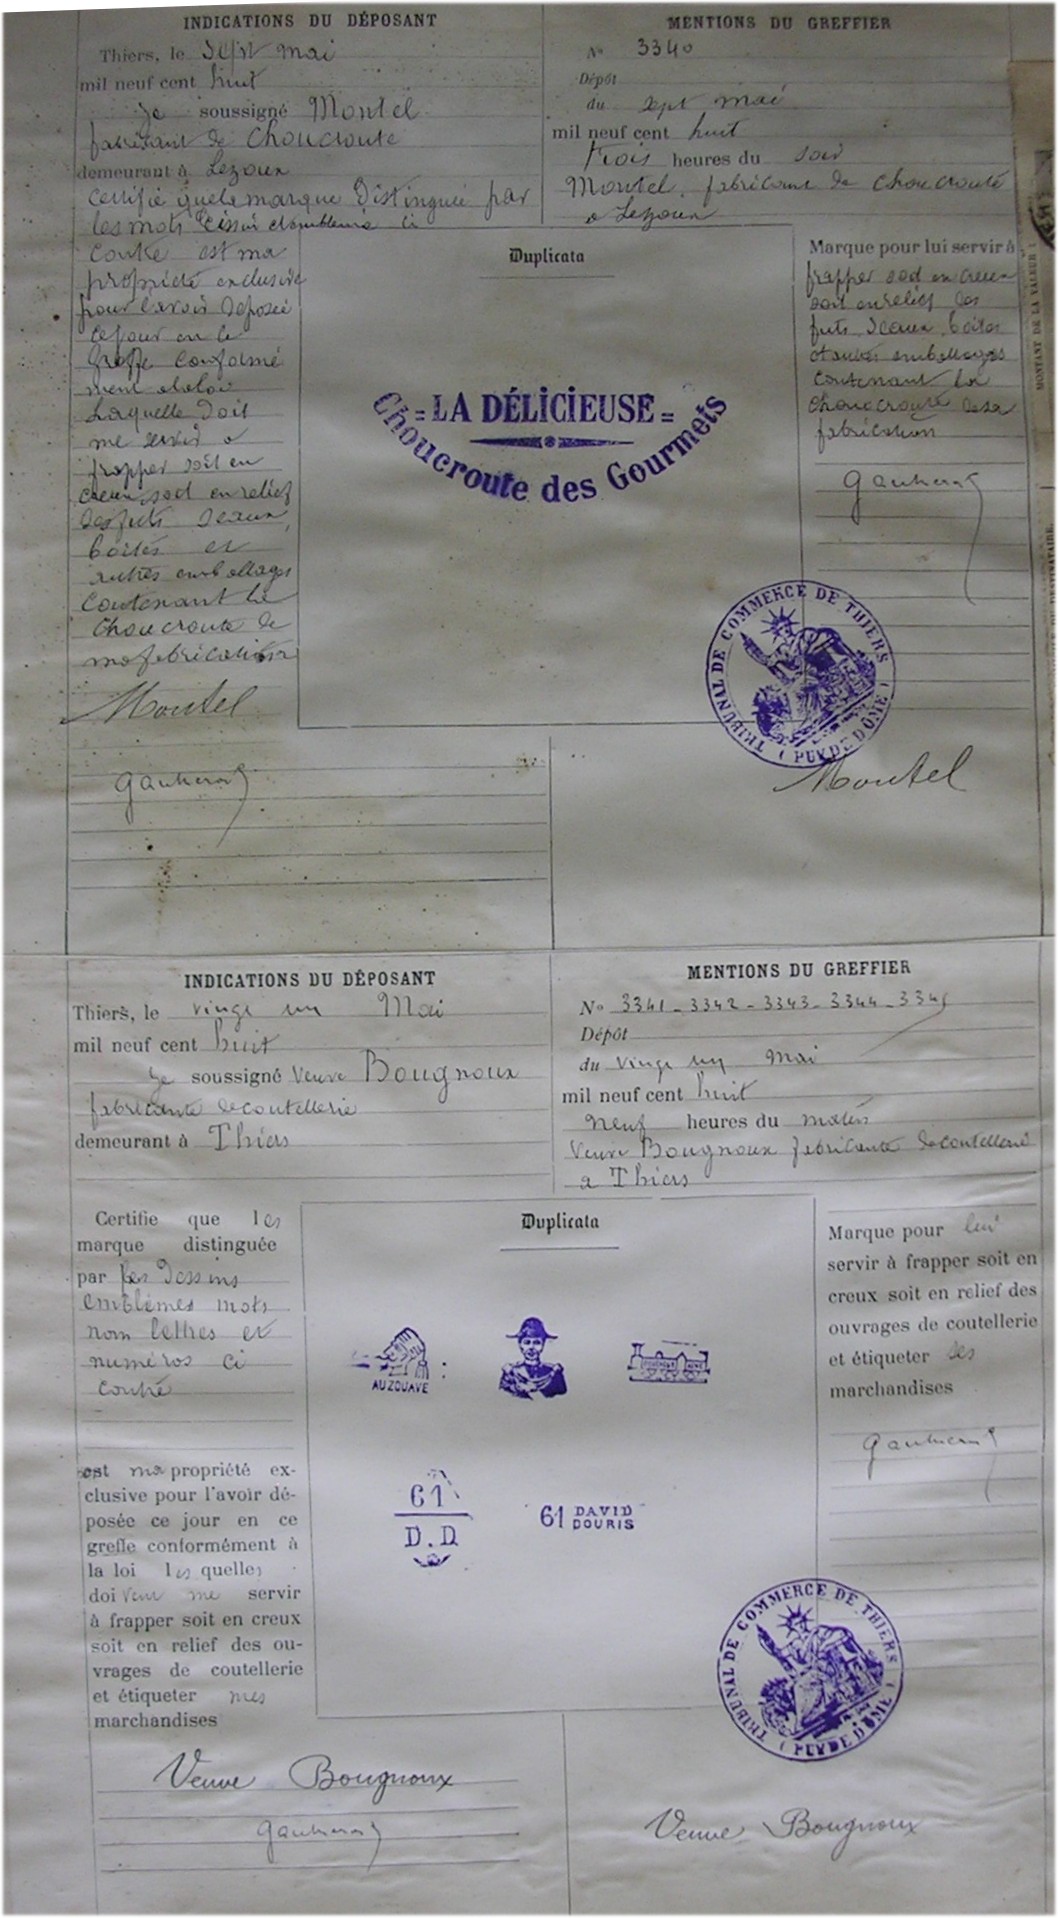 INDICATIONS DU DÉPOSANT
Thiers, le Sept mai
mil neuf cent huit
Je soussigné Montel
fabricant de Choucroute
demeurant à Lezoux
Certifie que la marque Distinguée par
les mots ci
contre est ma
propriété exclusive
pour l'avoir déposée
ce jour en ce
Greffe conformé
ment a la loi
Laquelle doit
me servir a
frapper soit en
creux soit en relief
des futs seaux,
boites et
autres emballages
contenant la
Choucroute de
ma fabrication
Montel
MENTIONS DU GREFFIER
No 3340
Dépôt
du sept mai
mil neuf cent huit
trois heures du soir
Montel, fabricant de choucroute
a Lezoux
Duplicata
= LA DÉLICIEUSE =
Choucroute des Gourmets
Marque pour lui servir à
frapper soit en creux
soit en relief des
futs seaux, boites
et autres emballages
contenant la
choucroute de sa
fabrication
TRIBUNAL DE COMMERCE DE THIERS
( PUY DE DÔME )
Montel
INDICATIONS DU DÉPOSANT
Thiers, le vingt un Mai
mil neuf cent huit
Je soussigné Veuve Bougnoux
fabricante de coutellerie
demeurant à Thiers
MENTIONS DU GREFFIER
No 3341 - 3342 - 3343 - 3344 - 3345
Dépôt
du vingt un mai
mil neuf cent huit
neuf heures du matin
Veuve Bougnoux fabricante de coutellerie
a Thiers
Certifie que les
marque distinguée
par les Dessins
emblèmes mots
nom lettres et
numéros ci
contre
est ma propriété ex-
clusive pour l'avoir dé-
posée ce jour en ce
greffe conformément à
la loi les quelles
doivent me servir
à frapper soit en creux
soit en relief des ou-
vrages de coutellerie
et étiqueter mes
marchandises
Veuve Bougnoux
Duplicata
AU ZOUAVE
61
D.D
61 DAVID
DOURIS
Marque pour lui
servir à frapper soit en
creux soit en relief des
ouvrages de coutellerie
et étiqueter ses
marchandises
TRIBUNAL DE COMMERCE DE THIERS
( PUY DE DÔME )
Veuve Bougnoux